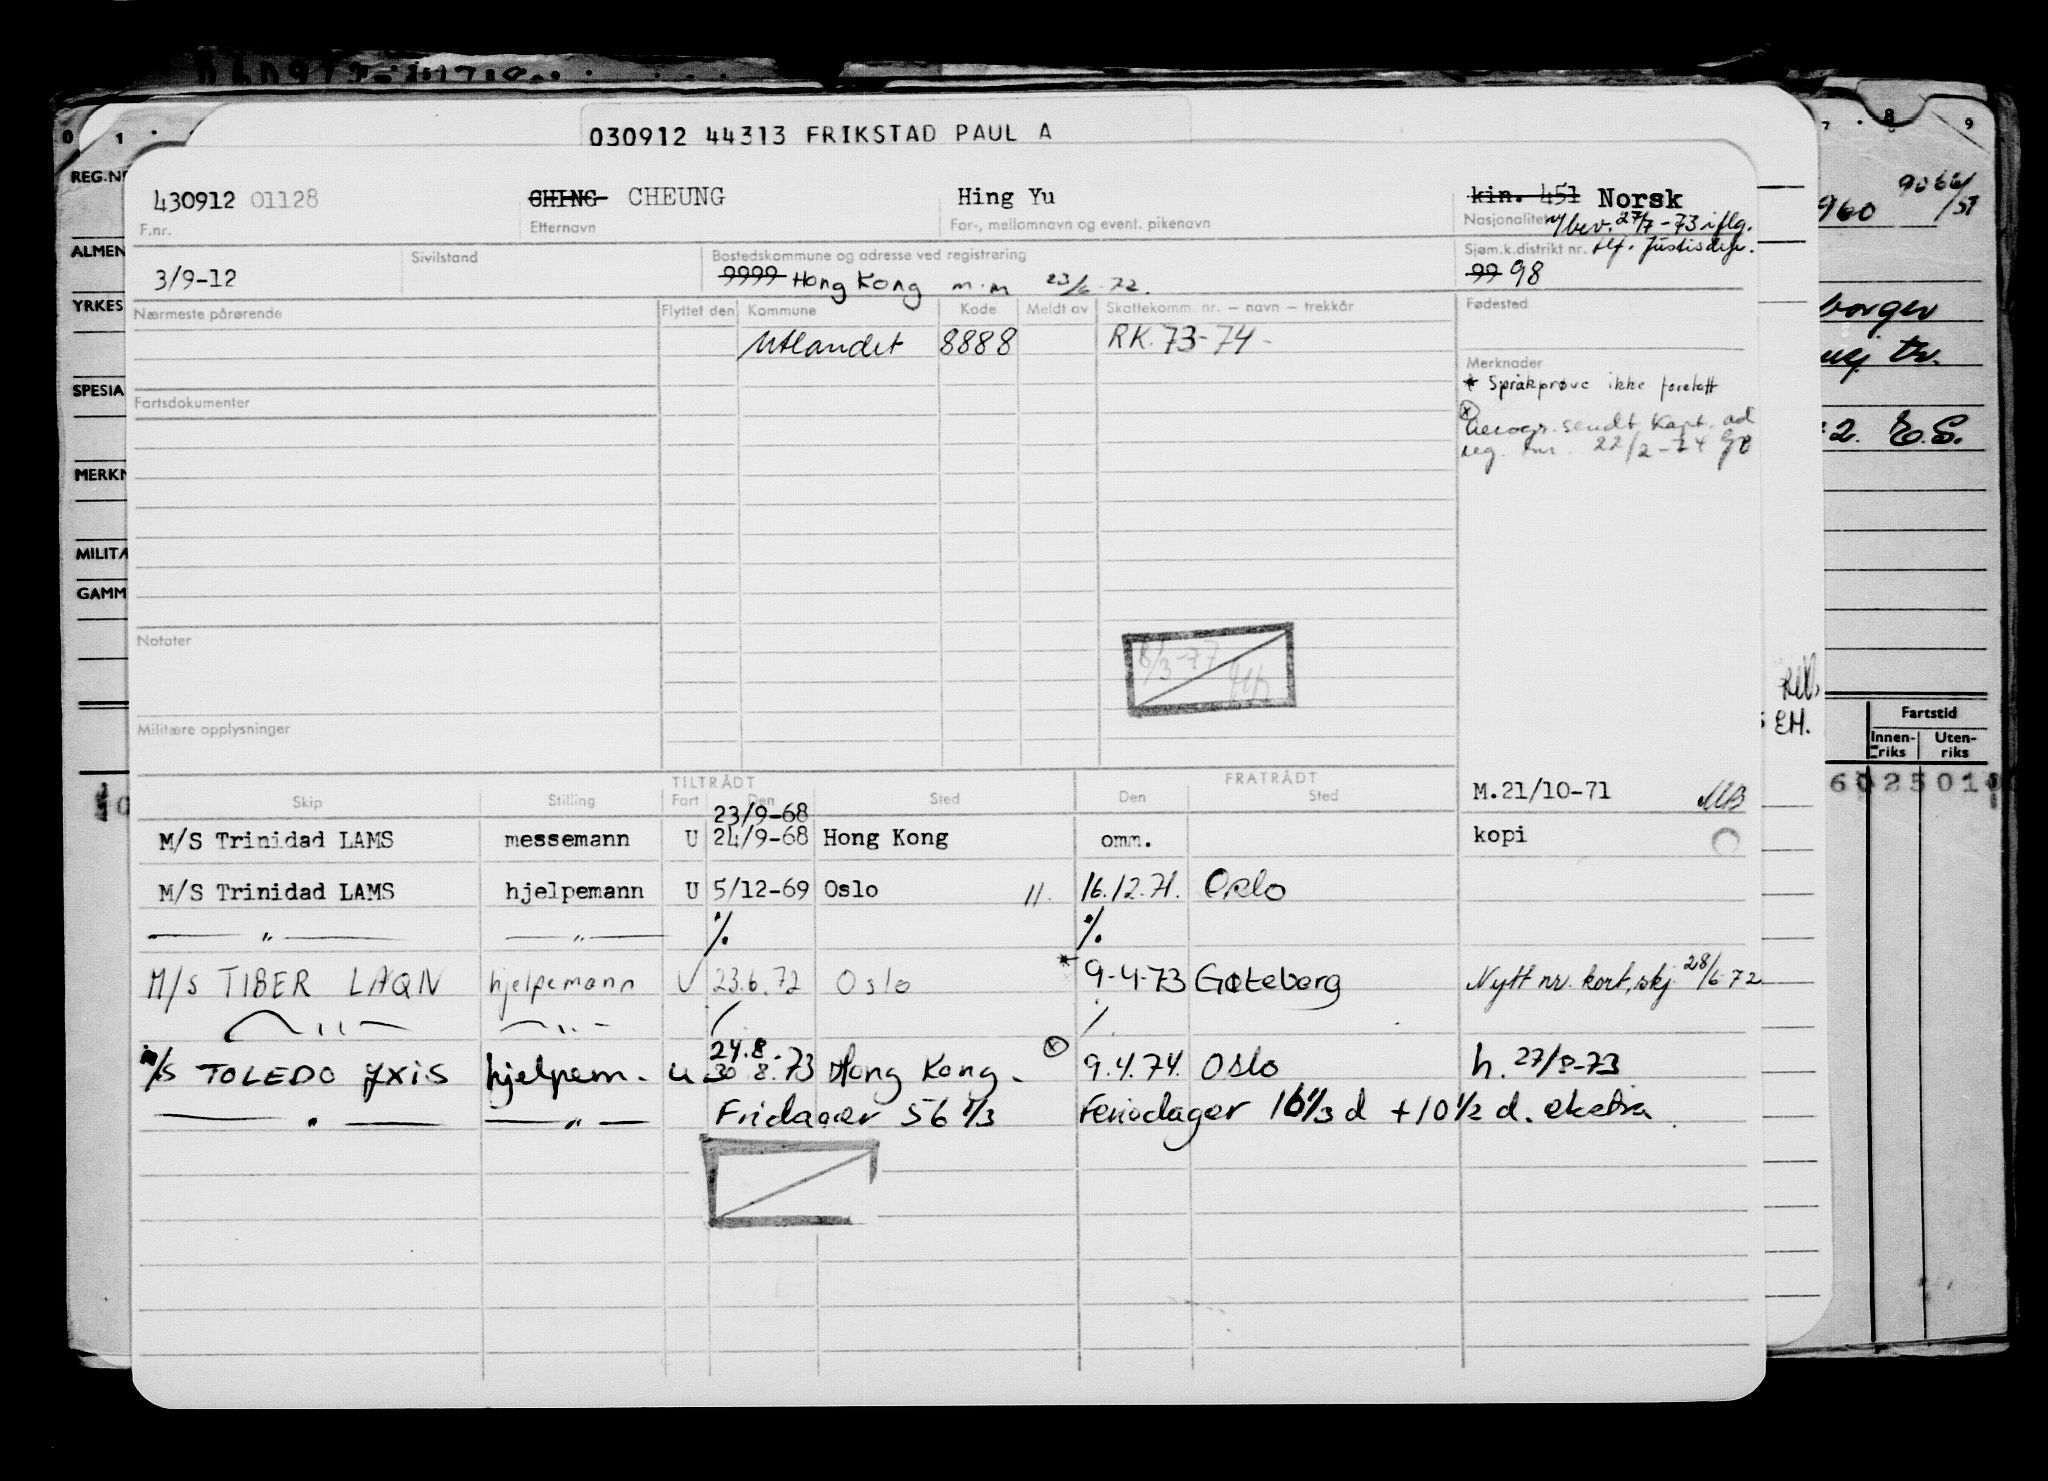 030912 44313 FRIKSTAD PAUL A
0 1 7 8 9
REG.NR
430912 01128 CHING CHEUNG Hing Yu kin. 451 Norsk
F.nr. Etternavn For-, mellomnavn og event. pikenavn Nasjonalitet
v/bev. 27/7-73 iflg.
tlf. Justisdep.
9066/51
960
ALMEN
3/9-12 Sivilstand Bostedskommune og adresse ved registrering Sjøm.k.distrikt nr.
9999 Hong Kong m.m 23/6-72. 99 98
YRKES
Nærmeste pårørende Flyttet den Kommune Kode Meldt av Skattekomm. nr. – navn – trekkår Fødested
Utlandet 8888 RK. 73-74-
Merknader
* Språkprøve ikke foretatt
SPESIA
Fartsdokumenter
Aerogr. sendt Kapt. ad
reg. nr. 22/2-74
2. E.S.
MERKN
MILITÆ
GAMM
Notater
8/3-77
Militære opplysninger
EH.
Fartstid
Innen-riks Uten-riks
TILTRÅDT FRATRÅDT
Skip Stilling Fart Den Sted Den Sted
M.21/10-71 MB
6025010
23/9-68
M/S Trinidad LAMS messemann U 24/9-68 Hong Kong omm. kopi
M/S Trinidad LAMS hjelpemann U 5/12-69 Oslo 11. 16.12.71. Oslo
— " — — " — ./. ./.
M/S TIBER LAQN hjelpemann U 23.6.72 Oslo * 9-4-73 Gøteborg Nytt nr. kort, skj. 28/6-72
— " — — " — / ./.
24.8.
M/S TOLEDO JXIS hjelpem. u 30 8.73 Hong Kong. ⊗ 9.4.74. Oslo h. 27/8-73
— " — — " — Fridager 56 1/3 Feriedager 16 1/3 d + 10 1/2 d. ekstra.